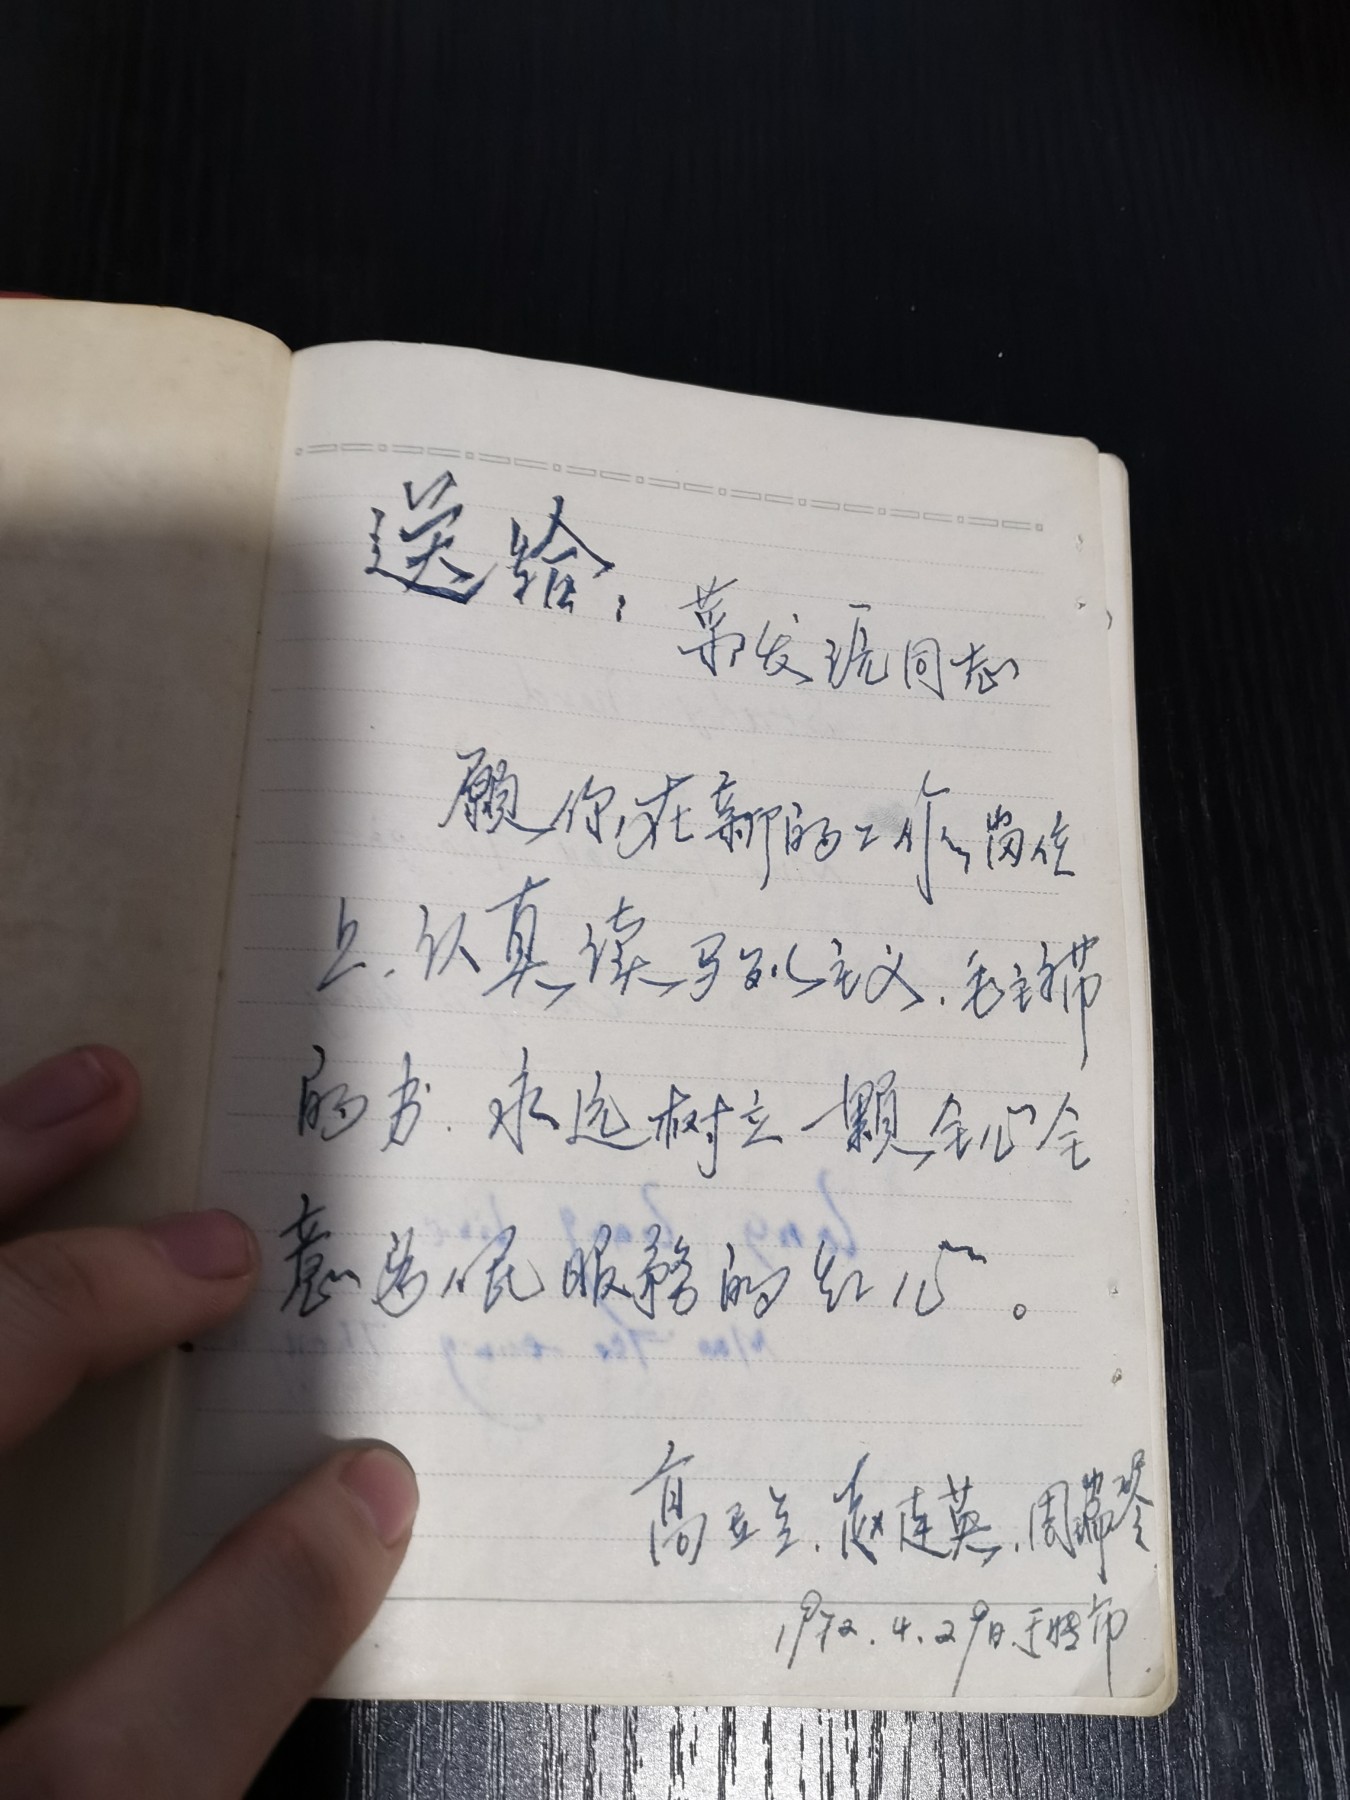 送给：
郭发琉同志
愿你在新的工作岗位
上、认真读马列主义、毛主席
的书、永远树立一颗全心全
意为人民服务的红心。
高玉兰、赵连英、周瑞琴
1972.4.29日于